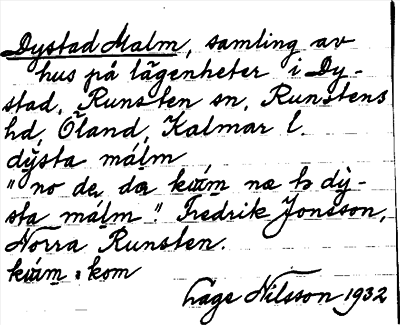 Dystad Malm, samling av
hus på lägenheter i Dy-
stad, Runsten sn, Runstens
hd, Öland, Kalmar l.
dýsta málm
"no de da kwám næ to dỳ-
sta málm". Fredrik Jonsson,
Norra Runsten.
kwám = kom
Lage Nilsson 1932